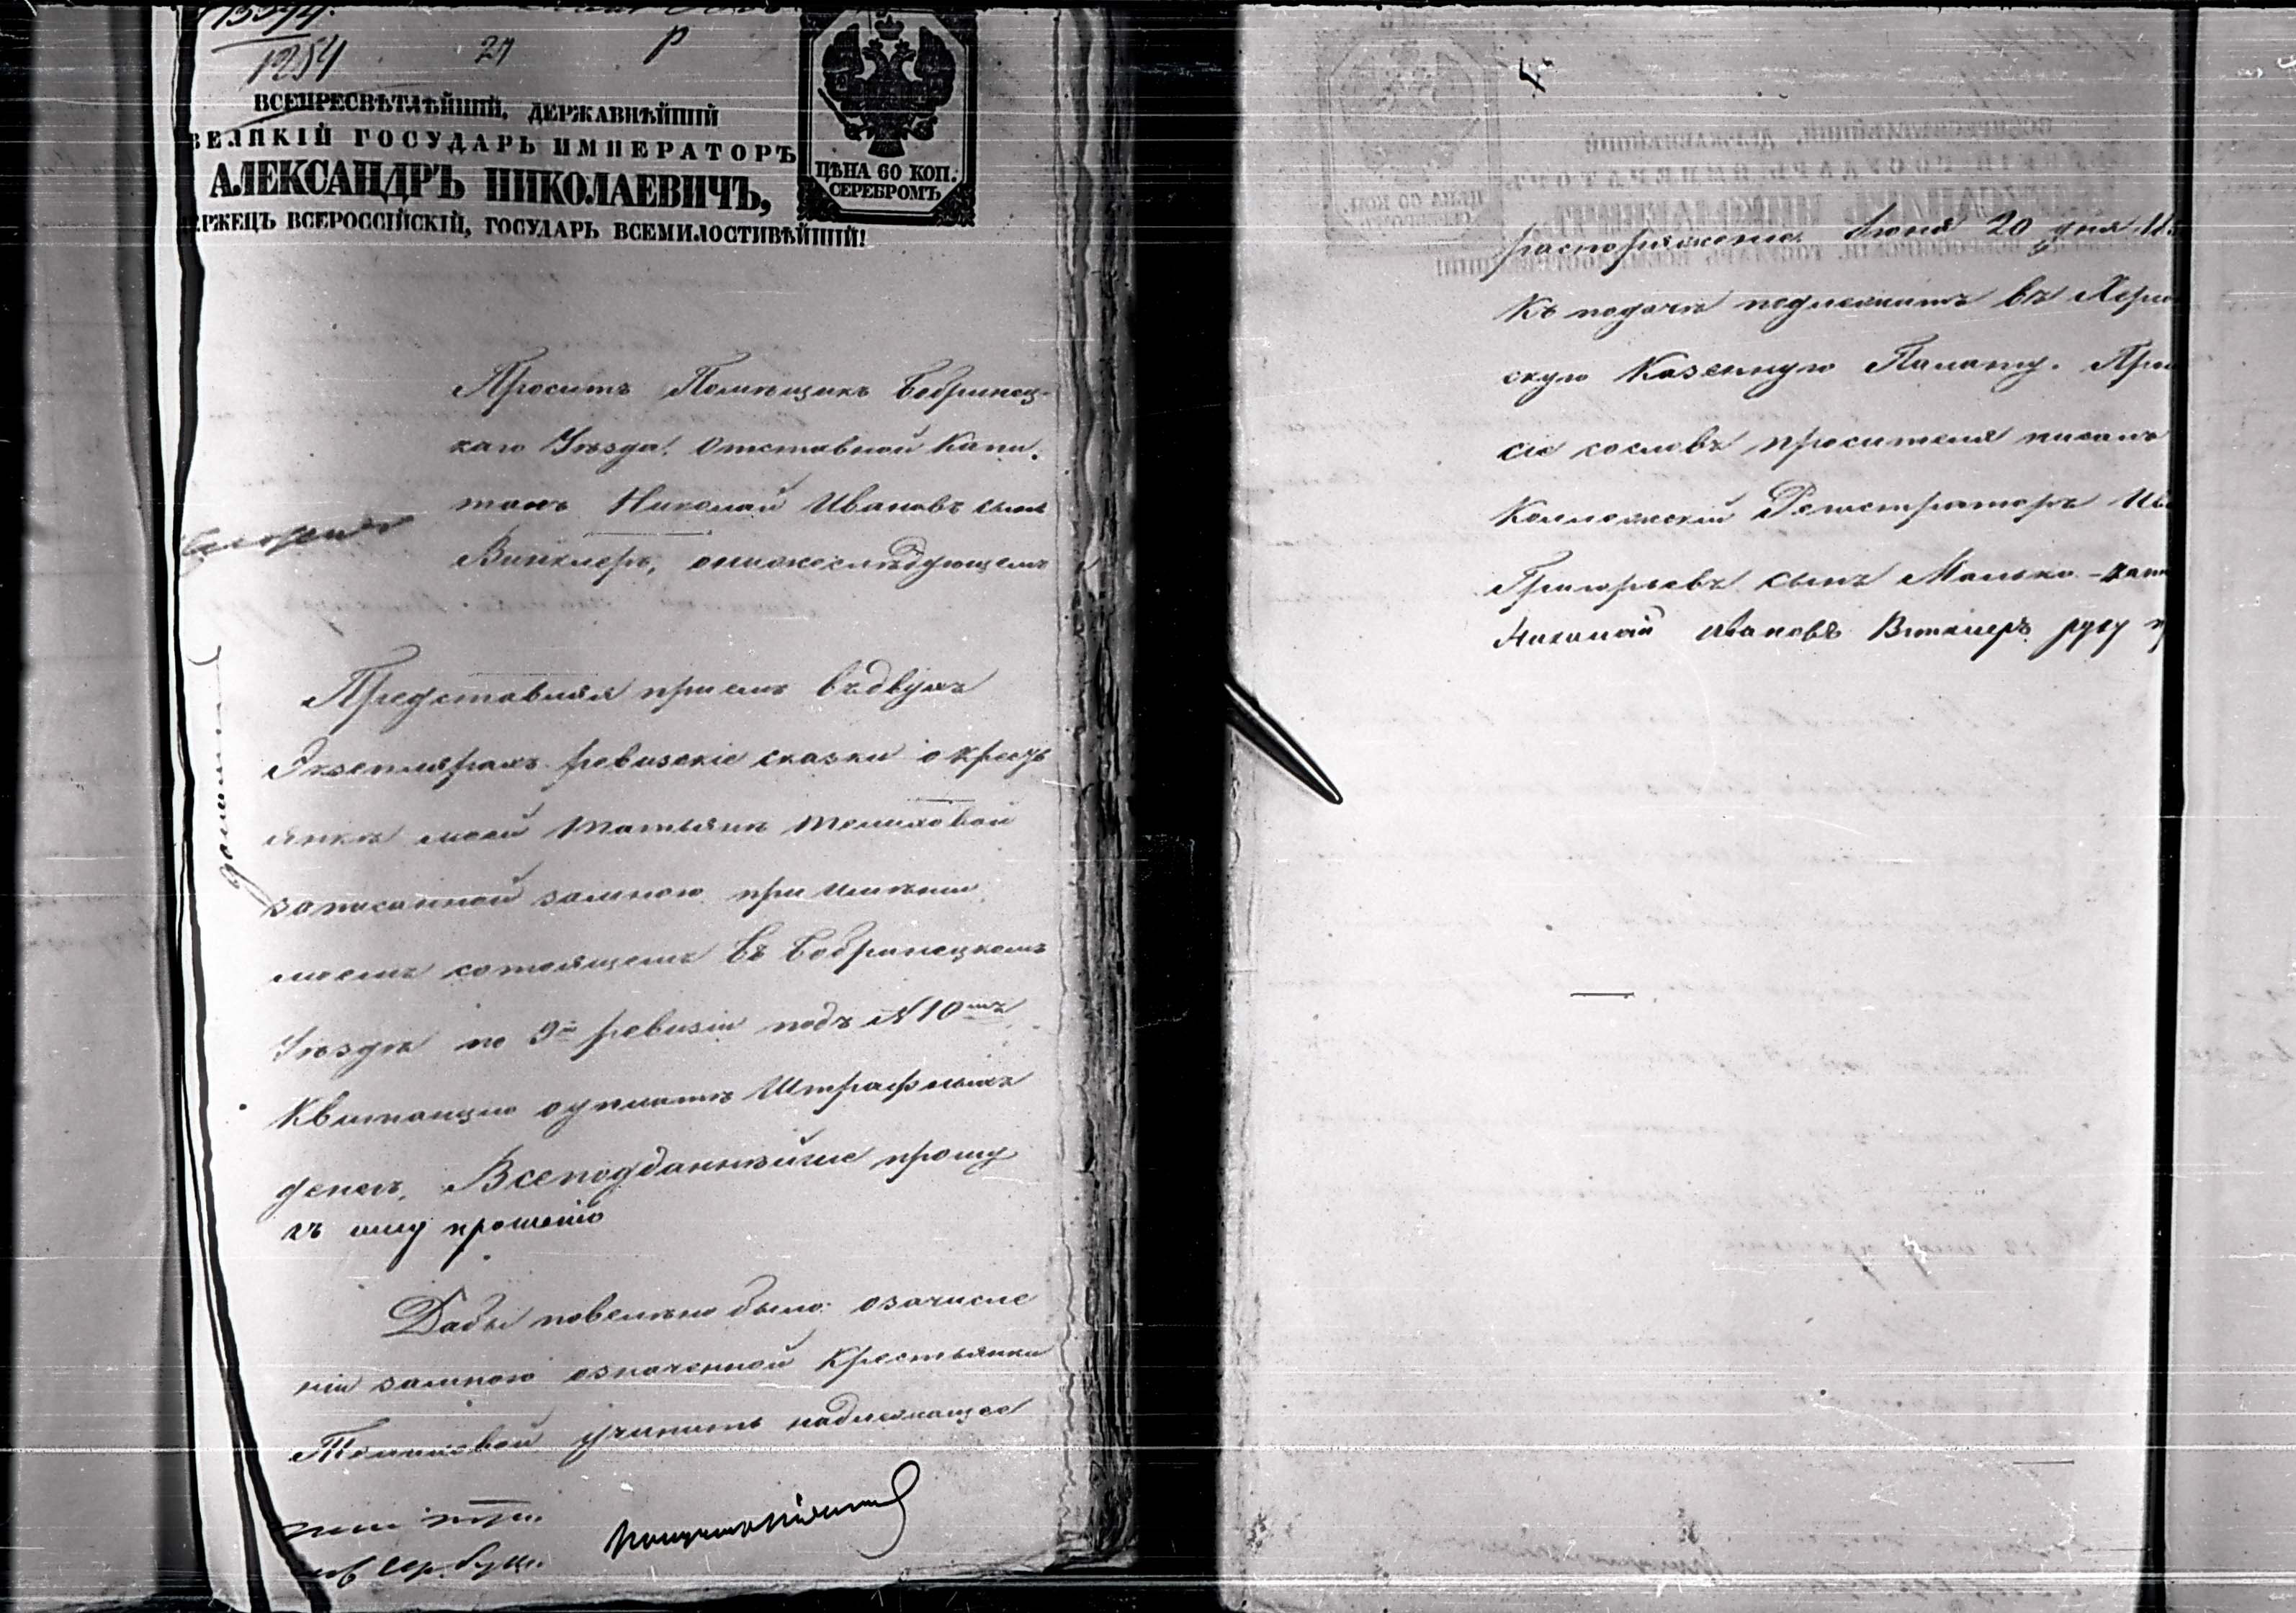 1254
21
р
ВСЕПРЕСВѢТЛѢЙШІЙ, ДЕРЖАВНѢЙШІЙ
ВЕЛИКІЙ ГОСУДАРЬ ИМПЕРАТОРЪ
АЛЕКСАНДРЪ НИКОЛАЕВИЧЪ,
ЕРЖЕЦЪ ВСЕРОССІЙСКІЙ, ГОСУДАРЬ ВСЕМИЛОСТИВѢЙШІЙ!
ЦѢНА 60 КОП.
СЕРЕБРОМЪ
Проситъ Помѣщикъ Бобринец-
каго Уѣзда Отставной Капи
танъ Николай Ивановъ сынъ
Винклеръ, онижеслѣдующемъ
Представляя при емъ въ двухъ
Экземплярахъ ревизскіе сказки о крестъ
янкѣ моей Татьянѣ
записанной замною при имѣніи
моемъ состоящемъ въ Бобринецкомъ
Уѣздѣ по 9й ревизіи подъ №10мъ
Квитанцію оуплатѣ Штрафныхъ
денегъ, Всеподданнѣйше прошу
къ сему прошенію
Дабы повелѣно было: озачисле
ніи замною означенной Крестьянки
учинить надлежащее
распоряженіе Іюня 20 дня 18
Къ подачѣ подлежитъ въ Херсо
скую Казенную Палату. Про
сіе сословъ просителя писалъ
Коллежскій Регистраторъ Ив
Григорьевъ сынъ
Николай Ивановъ Винклеръ руку п